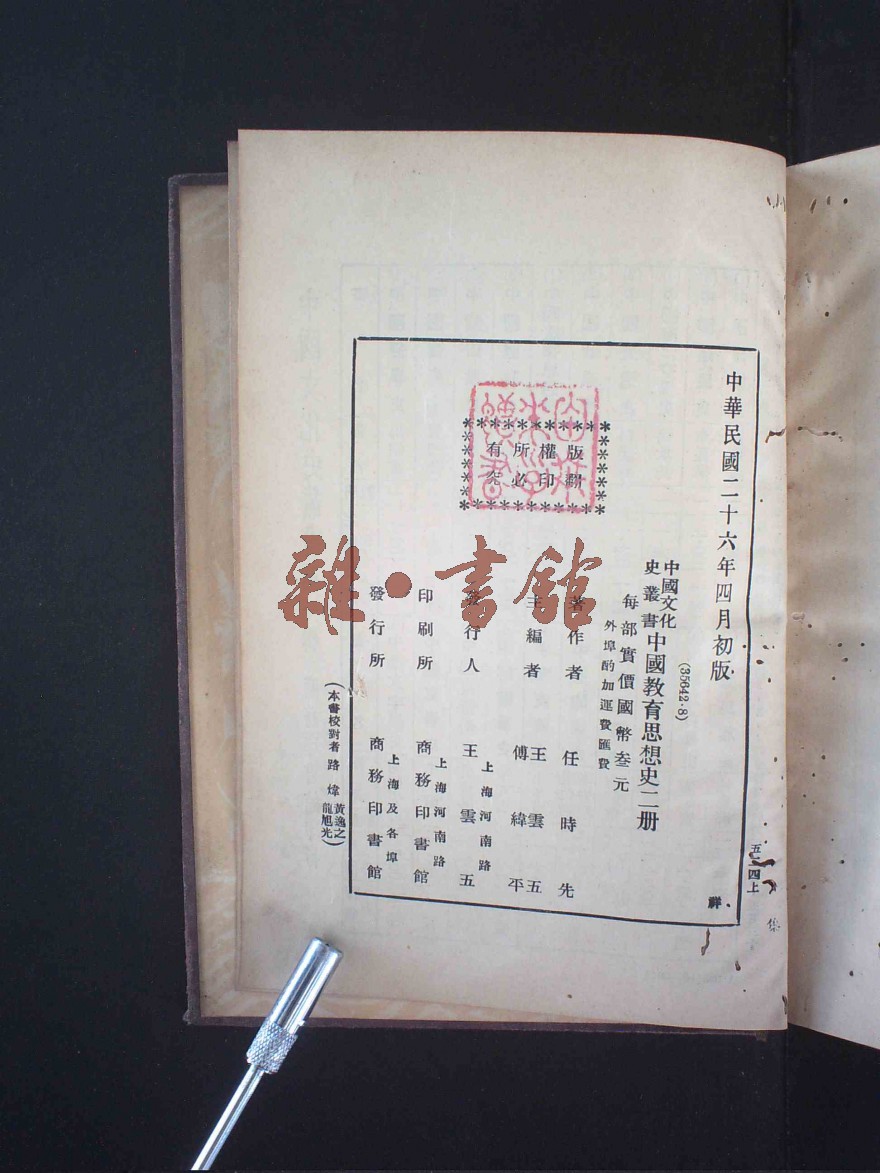 中華民國二十六年四月初版
(35642·8)
中國文化史叢書 中國教育思想史二册
每部實價國幣叁元
外埠酌加運費匯費
版權所有
翻印必究
著作者 任時先
主編者 王雲五 傅緯平
發行人 王雲五
上海河南路
印刷所 商務印書館
上海河南路
發行所 商務印書館
上海及各埠
(本書校對者路煒 黃逸之 龍旭光)
祥
雜·書館